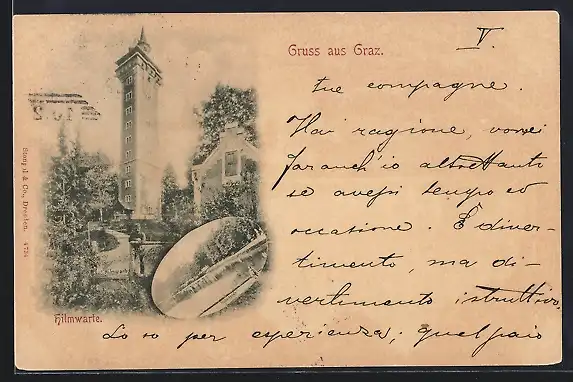 Gruss aus Graz.
V.
tue compagne.
Hai ragione, vorrei
far anch'io altrettanto
se avessi tempo ed
occasione. È diver-
timento, ma di-
vertimento istruttivo.
Lo so per esperienza; quel paio
Hilmwarte.
Stengel & Co., Dresden. 4724